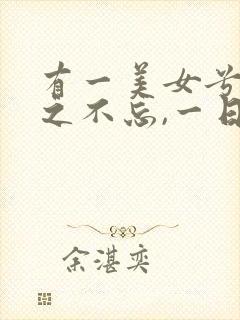 有一美女兮
之不忘,一日
余湛奕